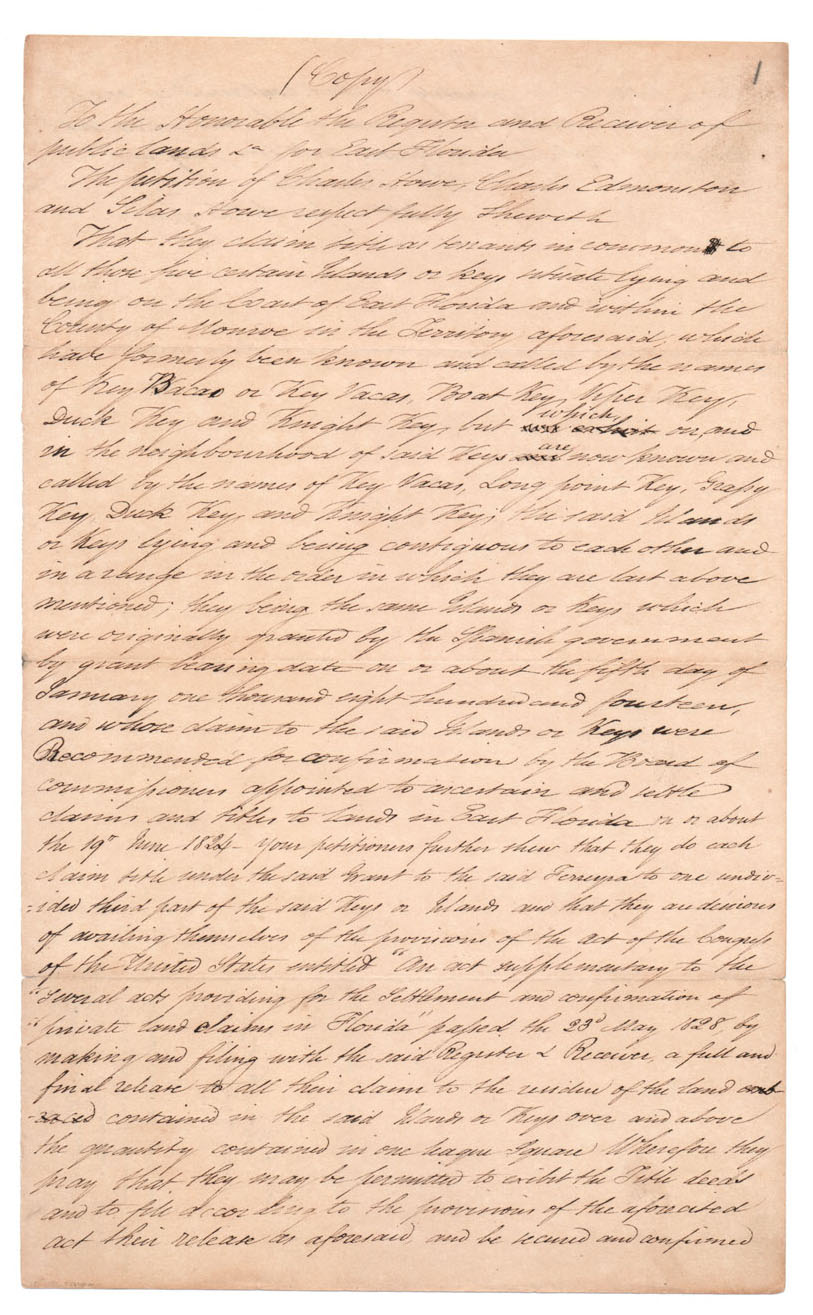 (Copy)
1
To the Honorable the Register and Receiver of
public lands &a for East Florida
The petition of Charles Howe, Charles Edmonston
and Silas Howe respectfully Sheweth
That they claim title as tenants in common to
all those five certain Islands or keys situate lying and
being on the Coast of East Florida and within the
County of Monroe in the Territory aforesaid, which
have formerly been known and called by the names
of Key Bacas or Key Vacas, Boat Key, Viper Key,
Duck Key and Knight Key, but which on, and
in the neighbourhood of said Keys are now known and
called by the names of Key Vacas, Long point Key, Grassy
Key, Duck Key, and Knight Key; the said Islands
or Keys lying and being contiguous to each other and
in a range in the order in which they are last above
mentioned; they being the same Islands or Keys which
were originally granted by the Spanish government
by grant bearing date on or about the fifth day of
January one thousand eight hundred and fourteen,
and whose claim to the said Islands or Keys were
Recommended for confirmation by the Board of
commissioners appointed to ascertain and settle
claims and titles to lands in East Florida on or about
the 19th June 1824 - Your petitioners further shew that they do each
claim title under the said Grant to the said Ferreyra to one undiv-
-ided third part of the said Keys or Islands and that they are desirous
of availing themselves of the provisions of the act of the Congress
of the United States entitled "An act supplementary to the
"Several acts providing for the Settlement and confirmation of
"private land claims in Florida" passed the 23d May 1828, by
making and filing with the said Register & Receiver, a full and
final release to all their claim to the residue of the land
contained in the said Islands or Keys over and above
the quantity contained in one league Square Wherefore they
pray that they may be permitted to exibit the Title deeds
and to file according to the provisions of the aforecited
act their release as aforesaid, and be secured and confirmed